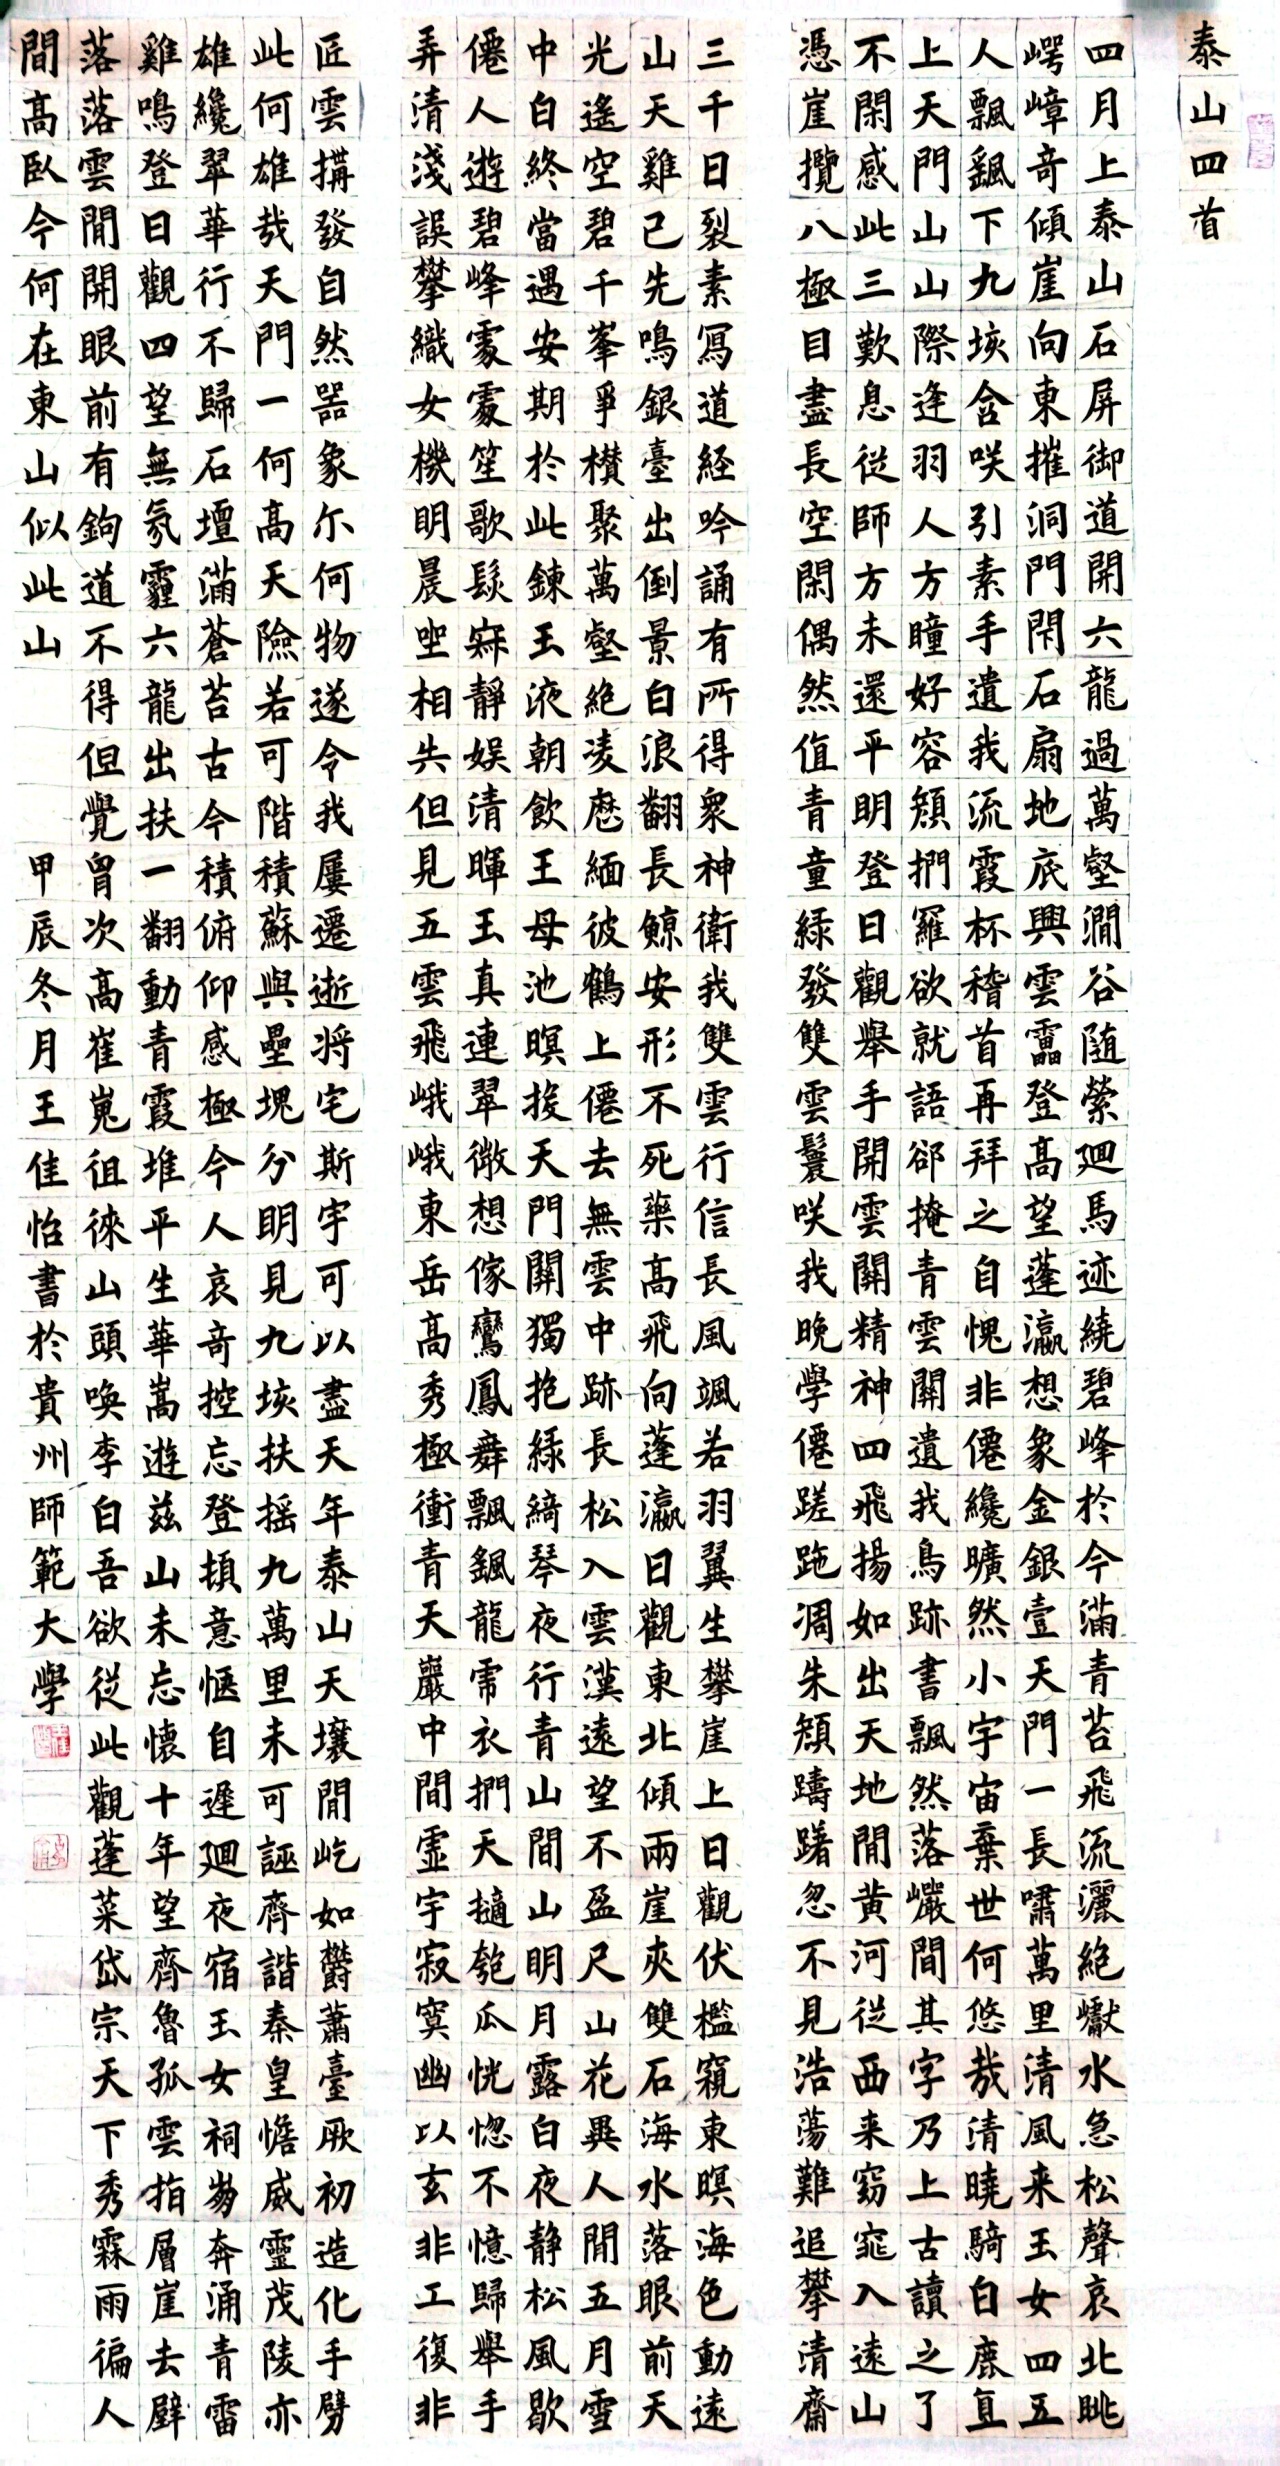 泰山四首
四月上泰山石屏御道開六龍過萬壑澗谷隨縈廻馬迹繞碧峰於今滿青苔飛流灑絶巘水急松聲哀北眺
崿嶂奇傾崖向東摧洞門閇石扇地底興雲靁登高望蓬瀛想象金銀臺天門一長嘯萬里清風来玉女四五
人飄颻下九垓含咲引素手遺我流霞杯稽首再拜之自愧非僊纔曠然小宇宙棄世何悠哉清曉騎白鹿直
上天門山山際逢羽人方瞳好容顏捫羅欲就語郤掩青雲關遺我鳥跡書飄然落巖間其字乃上古讀之了
不閑感此三歎息從師方未還平明登日觀舉手開雲關精神四飛揚如出天地間黃河從西来窈窕入遠山
憑崖攬八極目盡長空閑偶然值青童綠發雙雲鬟咲我晚學僊蹉跎凋朱顏躊躇忽不見浩蕩難追攀清齋
三千日裂素寫道経吟誦有所得衆神衛我雙雲行信長風颯若羽翼生攀崖上日觀伏檻窺東暝海色動遠
山天雞已先鳴銀臺出倒景白浪翻長鯨安形不死藥高飛向蓬瀛日觀東北傾兩崖夾雙石海水落眼前天
光遙空碧千峯爭欑聚萬壑絶凌歷緬彼鶴上僊去無雲中跡長松入雲漢遠望不盈尺山花異人間五月雪
中白終當遇安期於此鍊玉液朝飲王母池暝投天門關獨抱綠綺琴夜行青山間山明月露白夜靜松風歇
僊人遊碧峰處處笙歌發寐靜娱清暉玉真連翠微想像鸞鳳舞飄颻龍虎衣捫天摘匏瓜恍惚不憶歸舉手
弄清淺誤攀織女機明晨坐相失但見五雲飛峨峨東岳高秀極衝青天巖中間虛宇寂寞幽以玄非工復非
匠雲搆發自然器象尔何物遂令我屢遷逝将宅斯宇可以盡天年泰山天壤間屹如欝蕭臺厥初造化手劈
此何雄哉天門一何高天險若可階積蘇與壘塊分明見九垓扶摇九萬里未可誣齊諧秦皇憺威靈茂陵亦
雄纔翠華行不歸石壇滿蒼苔古今積俯仰感極今人哀奇控忘登頓意愜自遲廻夜宿玉女祠崩奔涌青雷
雞鳴登日觀四望無氛霾六龍出扶一翻動青霞堆平生華嵩遊兹山未忘懷十年望齊魯孤雲指層崖去壁
落落雲間開眼前有鉤道不得但覺胷次高崔嵬徂徠山頭喚李白吾欲從此觀蓬菜岱宗天下秀霖雨徧人
間高臥今何在東山似此山
甲辰冬月王佳怡書於貴州師範大學